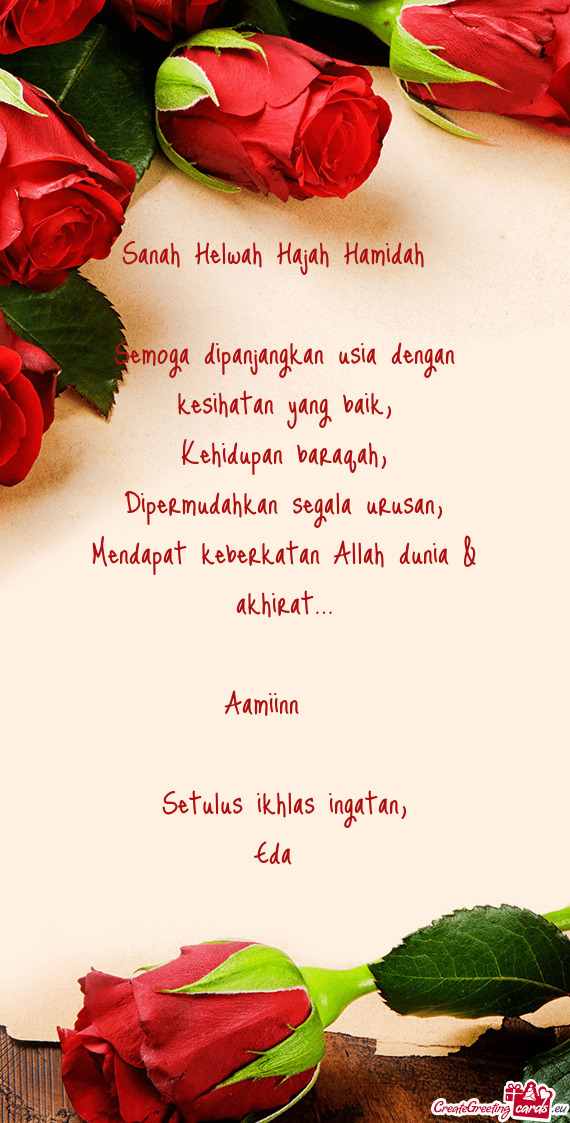 Sanah Helwah Hajah Hamidah
Semoga dipanjangkan usia dengan
kesihatan yang baik,
Kehidupan baraqah,
Dipermudahkan segala urusan,
Mendapat keberkatan Allah dunia &
akhirat...
Aamiinn
Setulus ikhlas ingatan,
Eda
CreateGreeting cards .eu